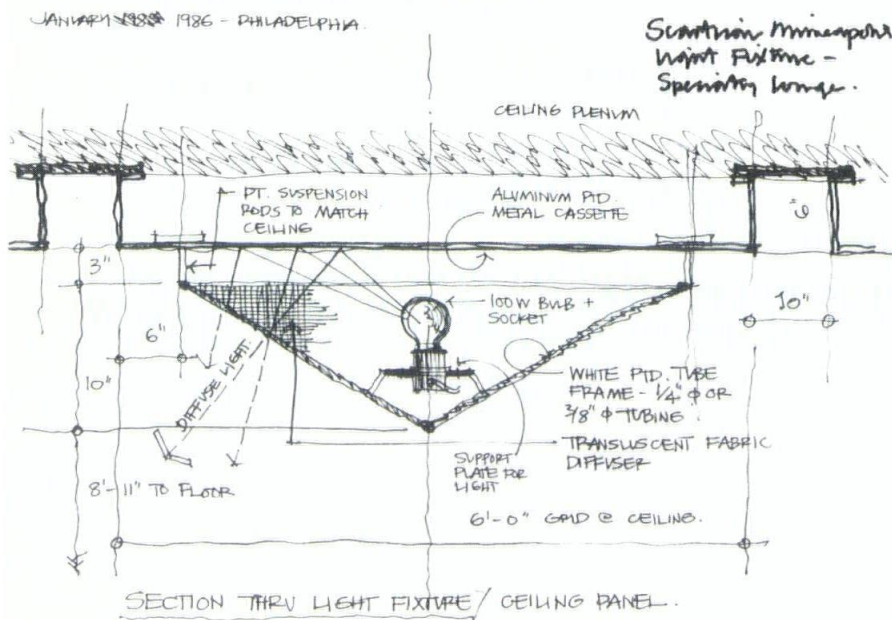 JANUARY 1986 - PHILADELPHIA.
Minneapolis
Light Fixture -
Specialty Lounge.
CEILING PLENUM
PT. SUSPENSION
RODS TO MATCH
CEILING
ALUMINUM PTD.
METAL CASSETTE
9"
3"
100W BULB +
SOCKET
10"
6"
10"
DIFFUSE LIGHT.
WHITE PTD. TUBE
FRAME - 1/4" φ OR
3/8" φ TUBING.
TRANSLUSCENT FABRIC
DIFFUSER
SUPPORT
PLATE FOR
LIGHT
8'-11" TO FLOOR
6'-0" GRID @ CEILING.
SECTION THRU LIGHT FIXTURE / CEILING PANEL.